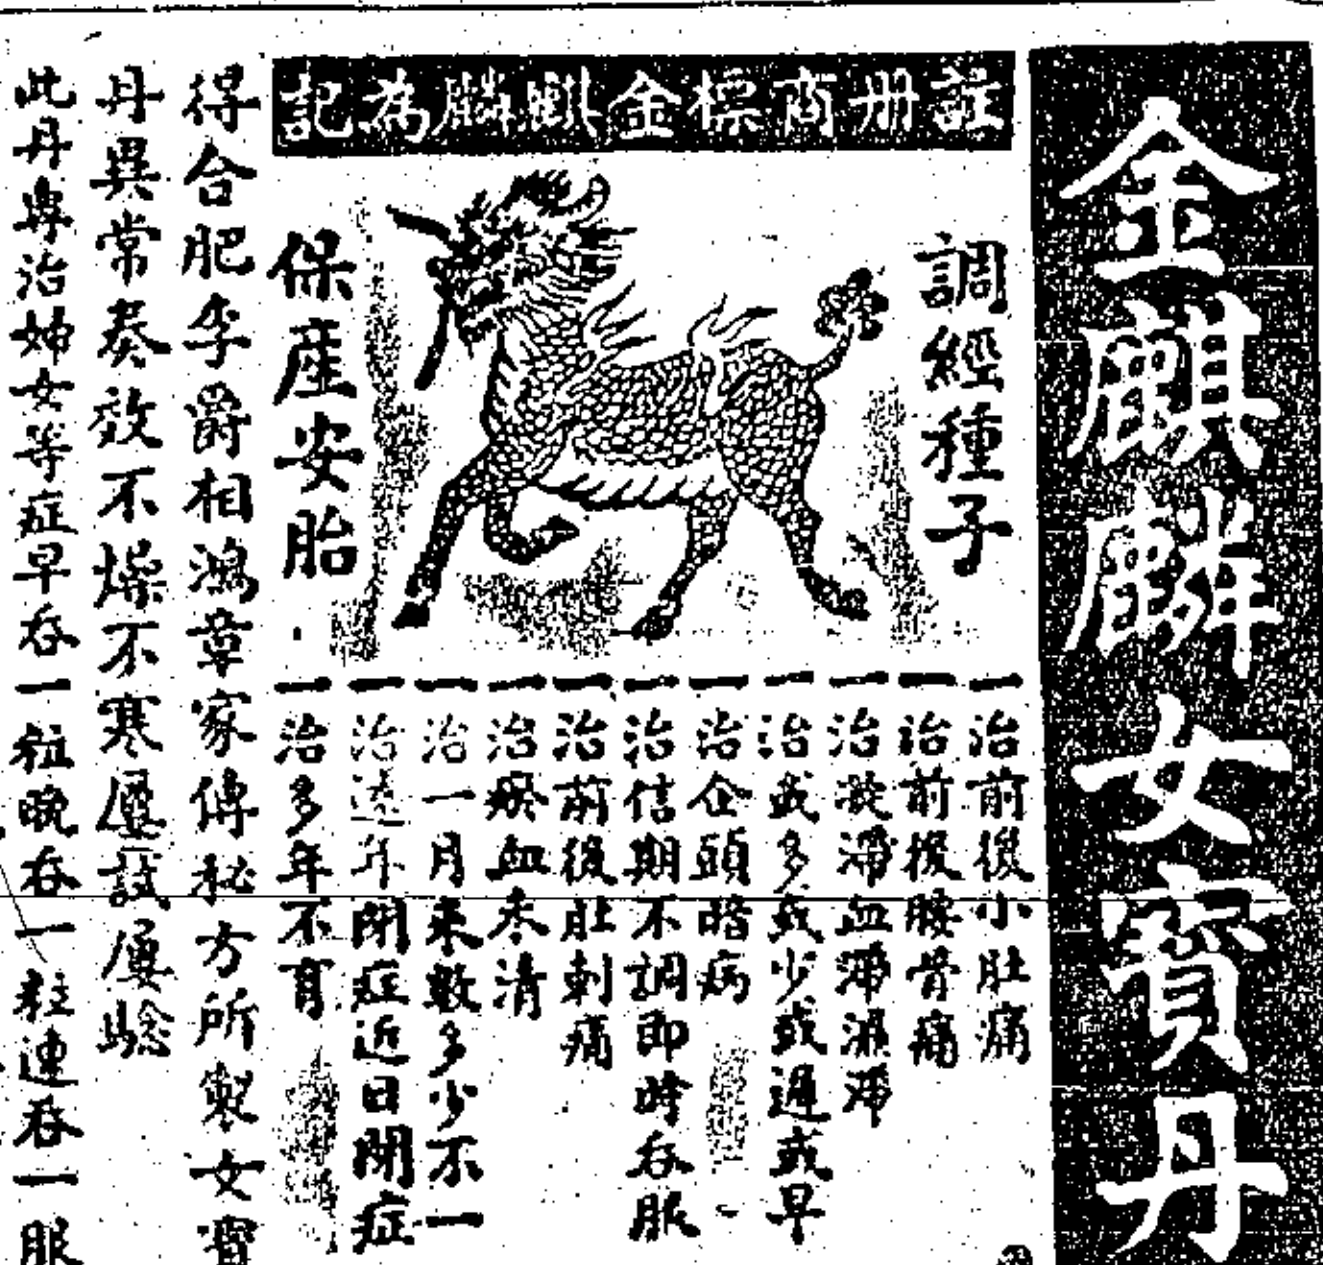 金麒麟女寶丹
註冊商標金麒麟為記
調經種子
保產安胎
一治前後小肚痛
一治前後腰骨痛
一治凝滯血滯濕滯
一治或多或少或遲或早
一治企頭暗病
一治信期不調即時吞服
一治前後肚刺痛
一治瘀血未清
一治一月來數多少不一
一治遠年閉症近日閉症
一治多年不育
得合肥李爵相鴻章家傳秘方所製女寶
丹異常奏效不燥不寒屢試屢驗
此丹專治婦女等症早吞一粒晚吞一粒連吞一服